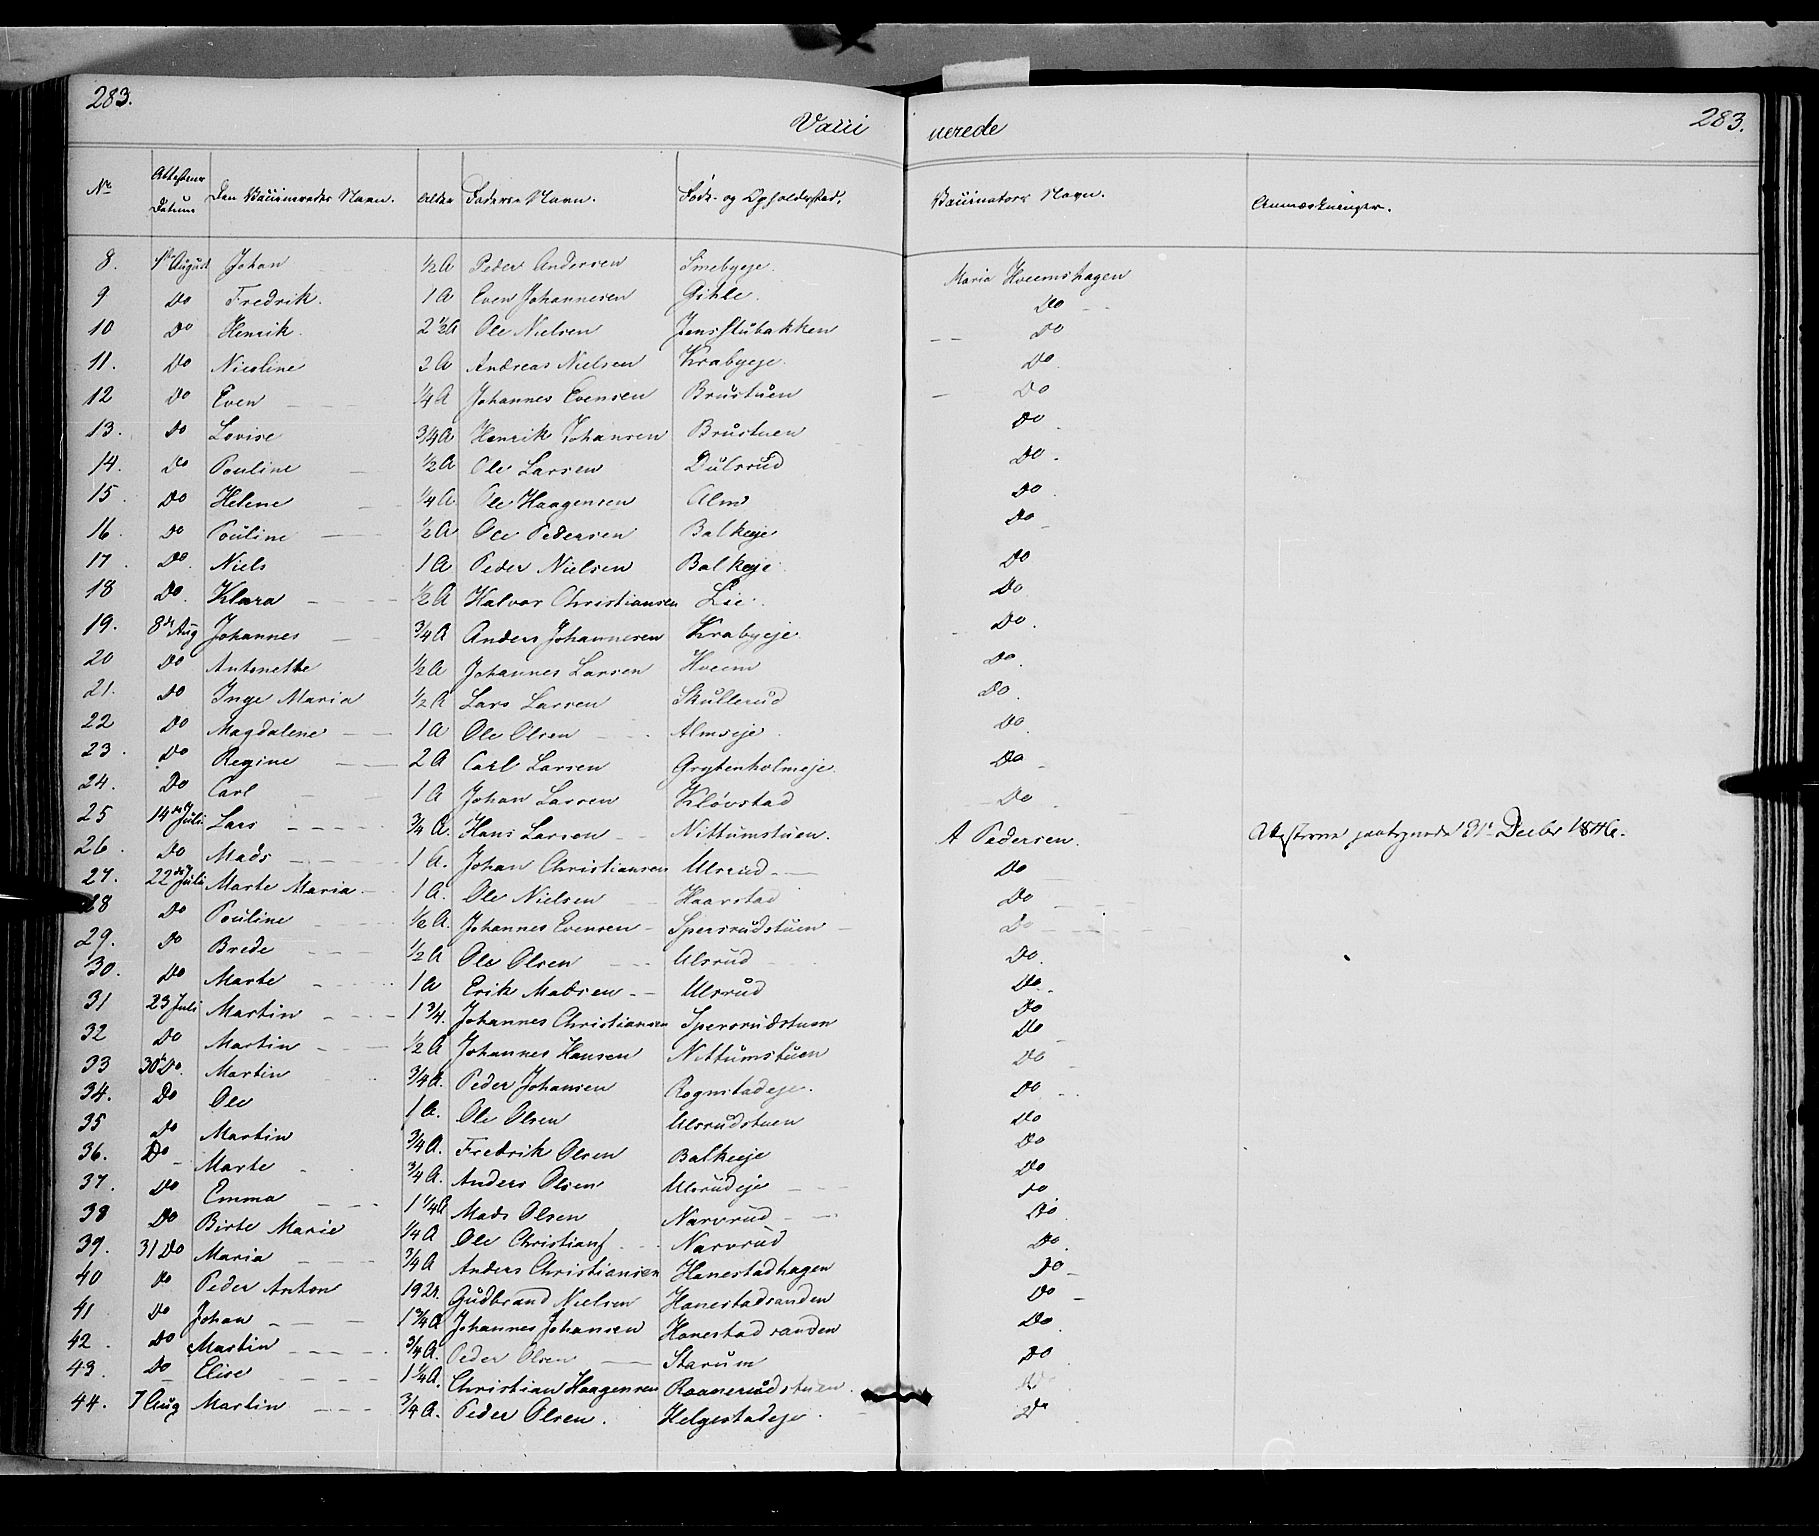 283.
283.
Vacci nerede
No Attestens Datum Den Vaccineredes Navn. Alder Faderens Navn. Føde- og Opholdssted. Vaccinators Navn. Anmærkninger.
8. 1ste August Johan ½ A Peder Andersen Smebyeje. Maria Hveemshagen
9 Do Fredrik. 1 A Even Johannesen Gihle. Do
10 Do Henrik. 2 ½ A Ole Nielsen Jensstubakken Do
11. Do Nicoline 2 A Andreas Nielsen Krabyeje. Do
12 Do Even ¼ A Johannes Evensen Brustuen Do
13. Do Lovise ¾ A Henrik Johansen Brustuen Do
14. Do Pouline ½ A Ole Larsen Dulsrud Do.
15 Do Helene ¼ A. Ole Haagensen Alm Do.
16. Do Pouline ½ A Ole Pedersen Balkeeje Do
17. Do. Niels 1 A Peder Nielsen Balkeje. Do
18 Do. Klara ½ A Halvor Christiansen Lie. Do
19. 8de Aug Johannes ¾ A Anders Johannesen Krabyeje. Do.
20 Do Antonette ½ A Johannes Larsen Hveem Do.
21. Do Inge Maria ½ A Lars Larsen Skullerud Do.
22 Do Magdalene 1 A Ole Olsen Almseje. Do.
23. Do Regine 2 A Carl Larsen Grytenholmeje. Do
24. Do Carl 1 A Johan Larsen Kløvstad Do
25 14de Juli Lars ¾ A. Hans Larsen Nittumstuen. A Pedersen. Attesterne 31 Decbr 1846.
26. Do Mads 1 A. Johan Christiansen Ulsrud Do
27. 22de Juli Marte Maria 1 A. Ole Nielsen Haarstad Do
28 Do Pouline ½ A. Johannes Evensen Spersrudstuen Do
29. Do Brede ½ A Ole Olsen Ulsrud Do.
30. Do Marte 1 A Erik Madsen Ulsrud Do.
31 23 Juli Martin 1 ¾. Johannes Christiansen Spersrudstuen Do
32 Do Martin ½ A Johannes Hansen Nittumstuen Do
33 30te Do. Martin ¾ A. Peder Johansen Rognstadeje. Do
34. Do Ole 1 A. Ole Olsen Ulsrudstuen Do
35 Do Martin ¾ A. Fredrik Olsen Balkeeje Do
36. Do Marte ¾ A. Anders Olsen Ulsrudeje Do
37. Do Emma 1 ¼ A Mads Olsen Narvrud Do
38 Do Birte Marie ¼ A Ole Christians. Narvrud Do
39. 31 Do Maria ¾ A Anders Christiansen Hanestadhagen Do.
40 Do Peder Anton Gudbrand Nielsen Hanestadsanden Do
41 Do Johan 1 ¾ A Johannes Johansen Hanestadsanden Do
42. Do Martin ¾ A. Peder Olsen Starum Do
43. Do Elise 1 ¼ A. Christian Haagensen Raanerudstuen. Do
44. 7 Aug Martin ¾ A. Peder Olsen. Helgestadeje. Do